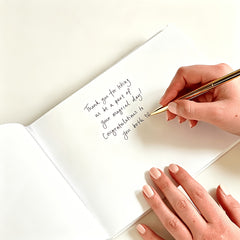 Thank you for letting
us be a part of
your magical day!
Congratulations to
you both